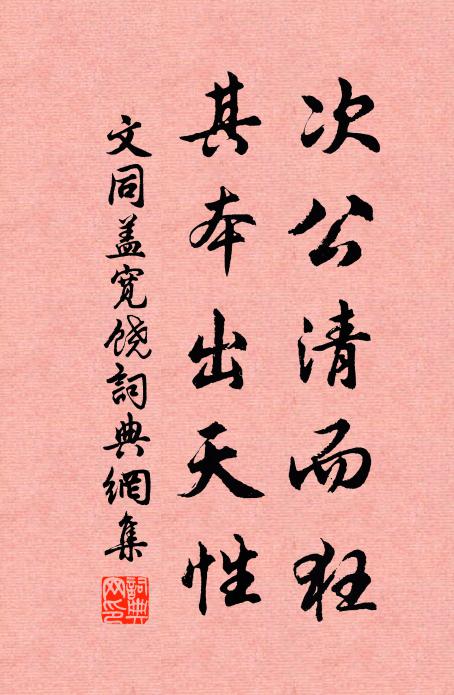 次公清而狂
其本出天性
文同盖寬饶詞典網集
詞典网印